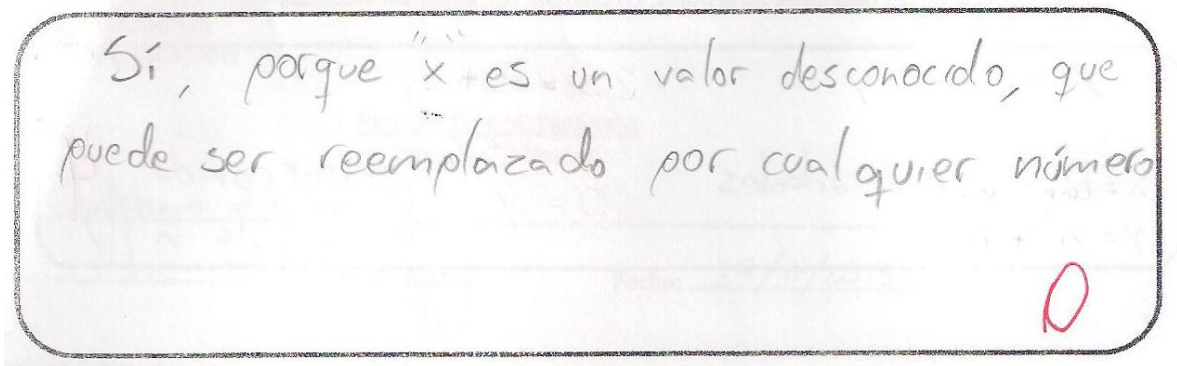 Sí, porque "x" es un valor desconocido, que
puede ser reemplazado por cualquier número
0